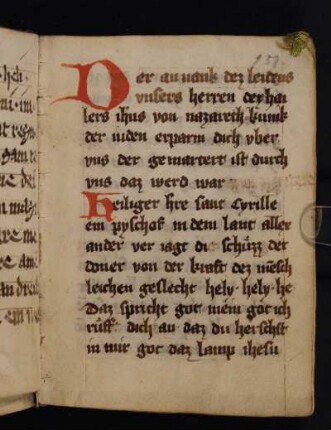 Der anuank dez leidens
vnsers herren dez hai
lers ihus von nazareth kunik
der iuden erparm dich vber
vns der gemartert ist durch
vns daz werd war
Heiliger hre sant Cyrille
ein pyschof in dem lant aller
ander ver iagt di schützz der
doner von der kraft dez mēsch
leichen geslecht hely hely he
Daz spricht got mein got ich
rüff dich an daz du herschst
in mir got daz lamp ihesu